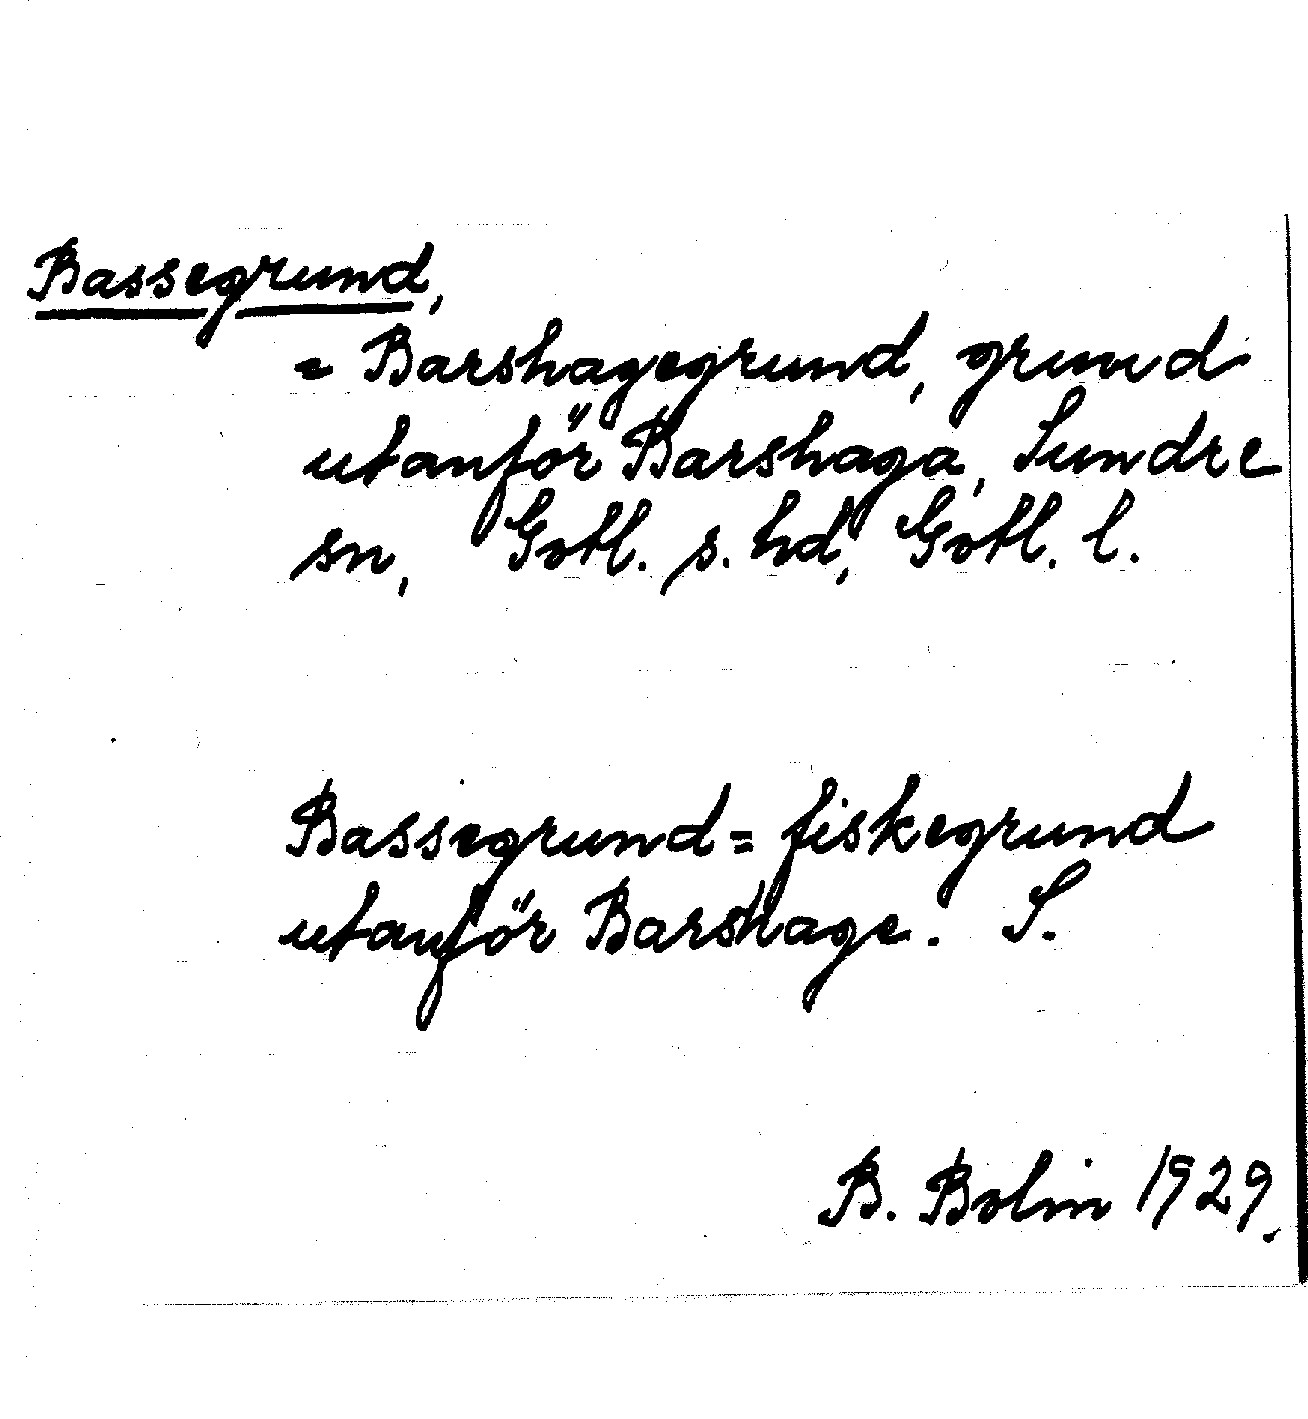 Bassegrund,
= Barshagegrund, grund
utanför Barshaga, Sundre
sn, Gotl. s. hd, Gotl. l.
Bassegrund = fiskegrund
utanför Barshage. S.
B. Bolin 1929.